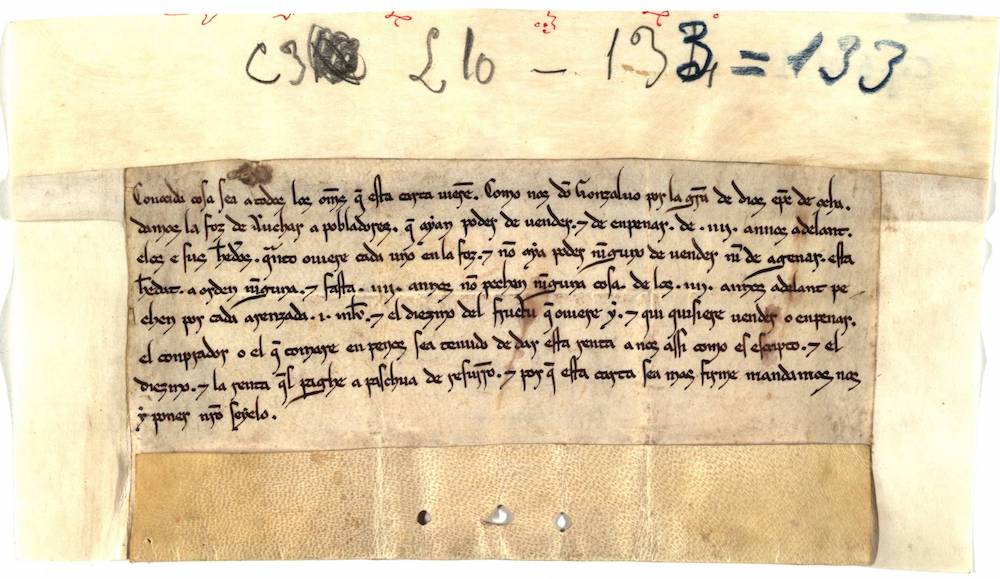 C3 L10 - 133 = 133
Conocida cosa sea a todos los om̃s q̃ esta carta uierẽ. Como nos dõ Gonzaluo por la grã de dios ep̃e de ocħa.
damos la foz de Ruchas a pobladores. q̃ ayan poder de vender. ⁊ de enpenar. de .iiii. annos adelant.
elos e sus ħederos. q̃nto ouiere cada uno en la foz. ⁊ nõ aya poder nĩguno de vender nĩ de agenar. esta
ħedat. a orden nĩguna. ⁊ fasta .iiii. annos nõ pechen nĩguna cosa. de los .iiii. annos adelant pe
chen por cada arenzada .i. mb̃. ⁊ el diezmo del fructu q̃ ouiere y. ⁊ qui quisiere vender o enpenar.
el conprador o el q̃ tomare en penos sea tenudo de dar esta renta a nos assi como es escripto. ⁊ el
diezmo. ⁊ la renta q̃l paghe a paschua de resurr̃o. ⁊ por q̃ esta carta sea mas firme mandamos nos
y poner nr̃o seyelo.